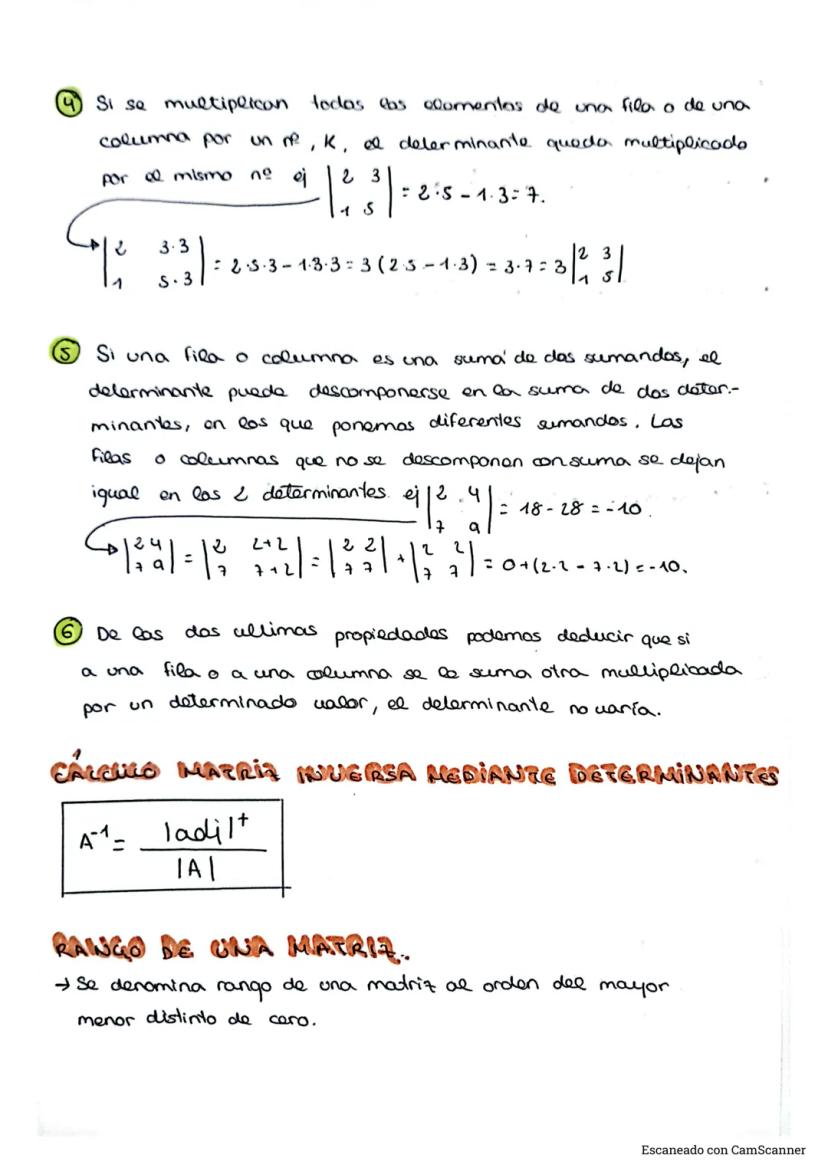 ④ Si se multiplican todos los elementos de una fila o de una
columna por un nº, K, el determinante queda multiplicado
por el mismo nº ej |2 3; 1 5| = 2·5 - 1·3 = 7.
|2 3·3; 1 5·3| = 2·5·3 - 1·3·3 = 3(2·5 - 1·3) = 3·7 = 3|2 3; 1 5|
⑤ Si una fila o columna es una suma de dos sumandos, el
determinante puede descomponerse en la suma de dos deter-
minantes, en los que ponemos diferentes sumandos. Las
filas o columnas que no se descomponen con suma se dejan
igual en los 2 determinantes. ej |2 4; 7 9| = 18 - 28 = -10.
|2 4; 7 9| = |2 2+2; 7 7+2| = |2 2; 7 7| + |2 2; 7 7| = 0 + (2·2 - 7·2) = -10.
⑥ De las dos ultimas propiedades podemos deducir que si
a una fila o a una columna se le suma otra multiplicada
por un determinado valor, el determinante no varía.
CÁLCULO MATRIZ INVERSA MEDIANTE DETERMINANTES
A⁻¹ = |adj|ᵗ / |A|
RANGO DE UNA MATRIZ.
→ Se denomina rango de una matriz al orden del mayor
menor distinto de cero.
Escaneado con CamScanner